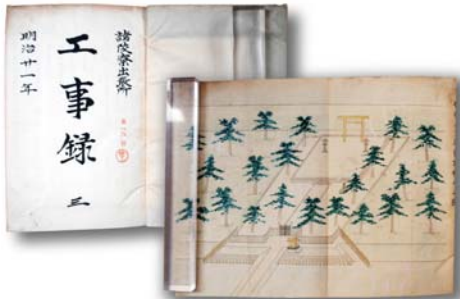 諸陵寮出張所
工事録 三
明治廿一年